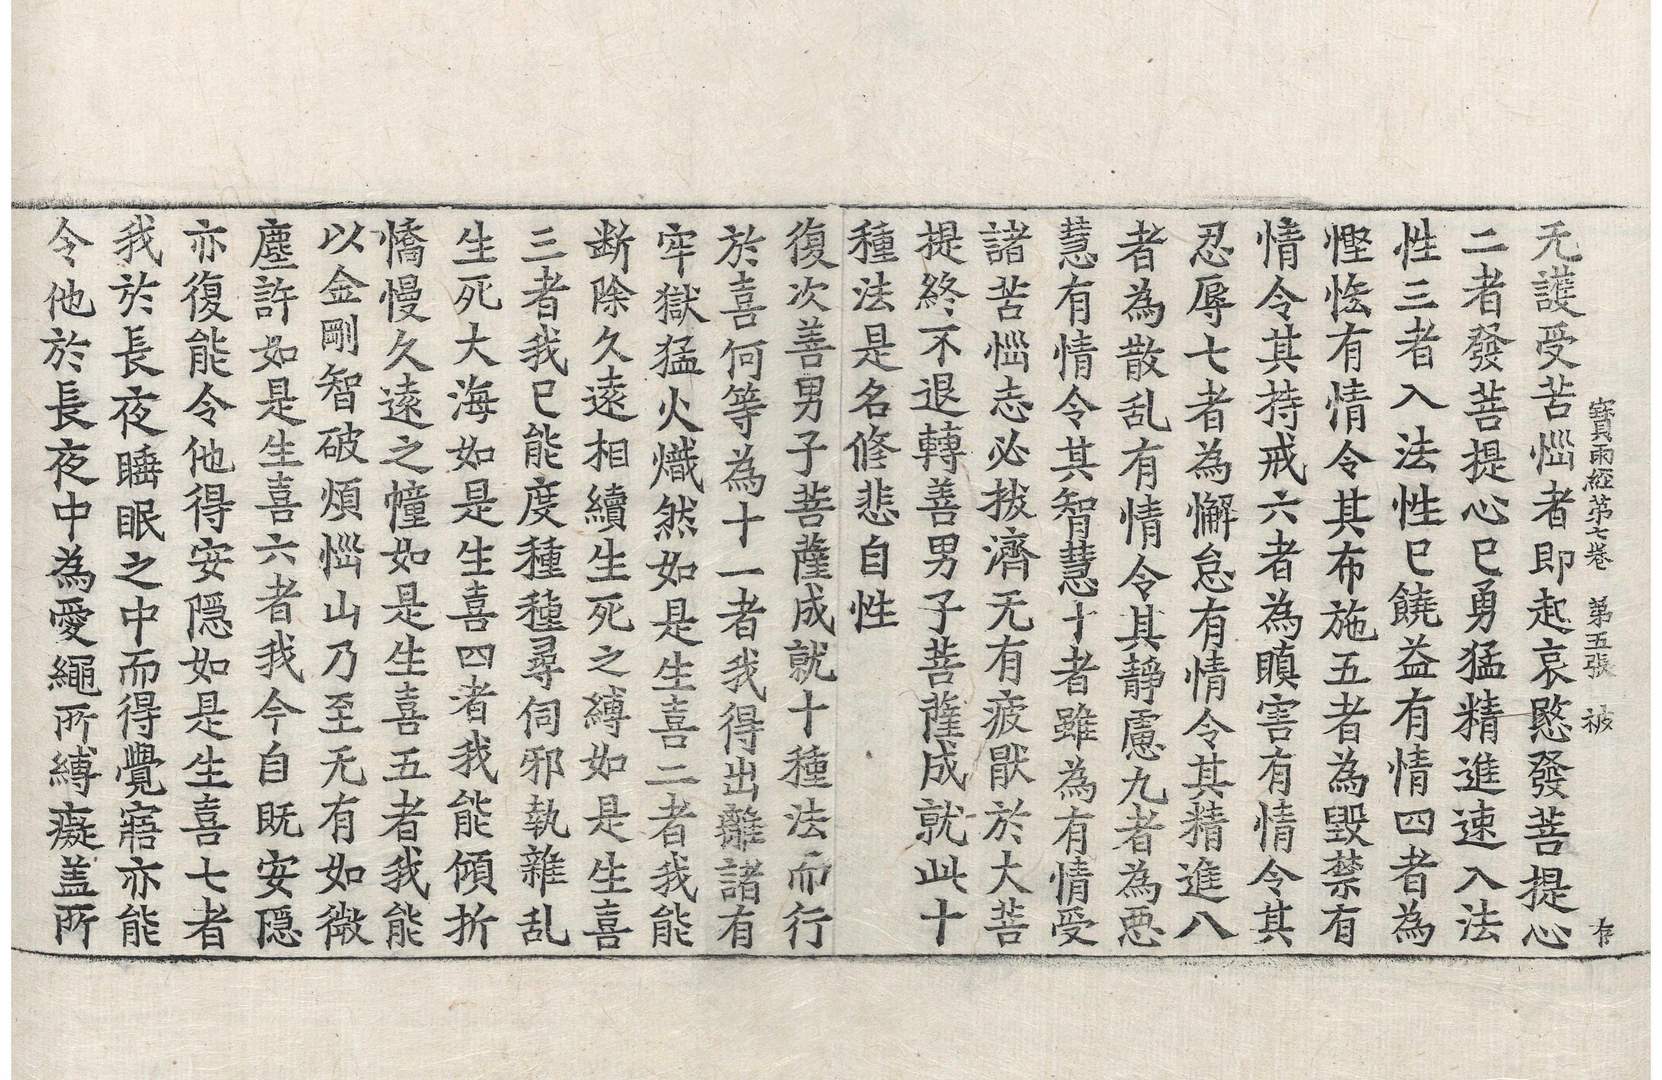 寳雨經第七卷 第五張 被 存
无護受苦惱者即起哀愍發菩提心
二者發菩提心已勇猛精進速入法
性三者入法性已饒益有情四者為
慳悋有情令其布施五者為毀禁有
情令其持戒六者為瞋害有情令其
忍辱七者為懈怠有情令其精進八
者為散乱有情令其靜慮九者為惡
慧有情令其智慧十者雖為有情受
諸苦惱志必拔濟无有疲猒於大菩
提終不退轉善男子菩薩成就此十
種法是名修悲自性
復次善男子菩薩成就十種法而行
於喜何等為十一者我得出離諸有
牢獄猛火熾然如是生喜二者我能
断除久遠相續生死之縛如是生喜
三者我已能度種種尋伺邪執雜乱
生死大海如是生喜四者我能傾折
憍慢久遠之幢如是生喜五者我能
以金剛智破煩惱山乃至无有如微
塵許如是生喜六者我今自既安隱
亦復能令他得安隱如是生喜七者
我於長夜睡眠之中而得覺寤亦能
令他於長夜中為愛繩所縛癡盖所